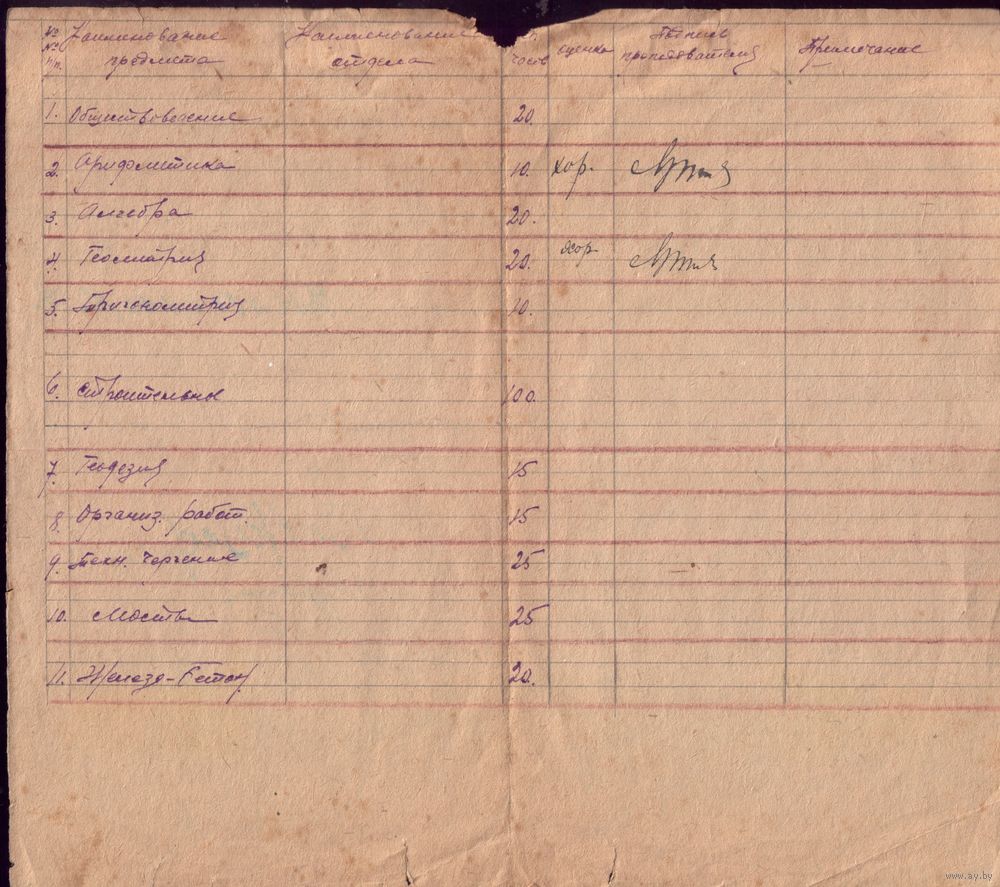 №№ п/п. Наименование предмета Наименование отдела часов оценка Подпись преподавателя Примечание
1. Обществоведение 20.
2. Арифметика 10. хор.
3. Алгебра 20.
4. Геометрия 20. хор
5. Тригонометрия 10.
6. Строительное 100.
7. Геодезия 15
8. Организ. работ. 15
9. Техн. черчение 25
10. Мосты 25
11. Железо-бетон. 20.
www.ay.by